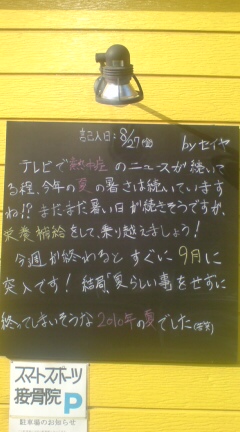 記入日:8/27(金)
by セイヤ
テレビで熱中症のニュースが続いて
る程、今年の夏の暑さは続いています
ね!? まだまだ暑い日が続きそうですが、
栄養補給をして、乗り越えましょう!
今週が終わるとすぐに9月に
突入です! 結局、夏らしい事をせずに
終ってしまいそうな2010年の夏でした(苦笑)
スマートスポーツ
接骨院 P
駐車場のお知らせ